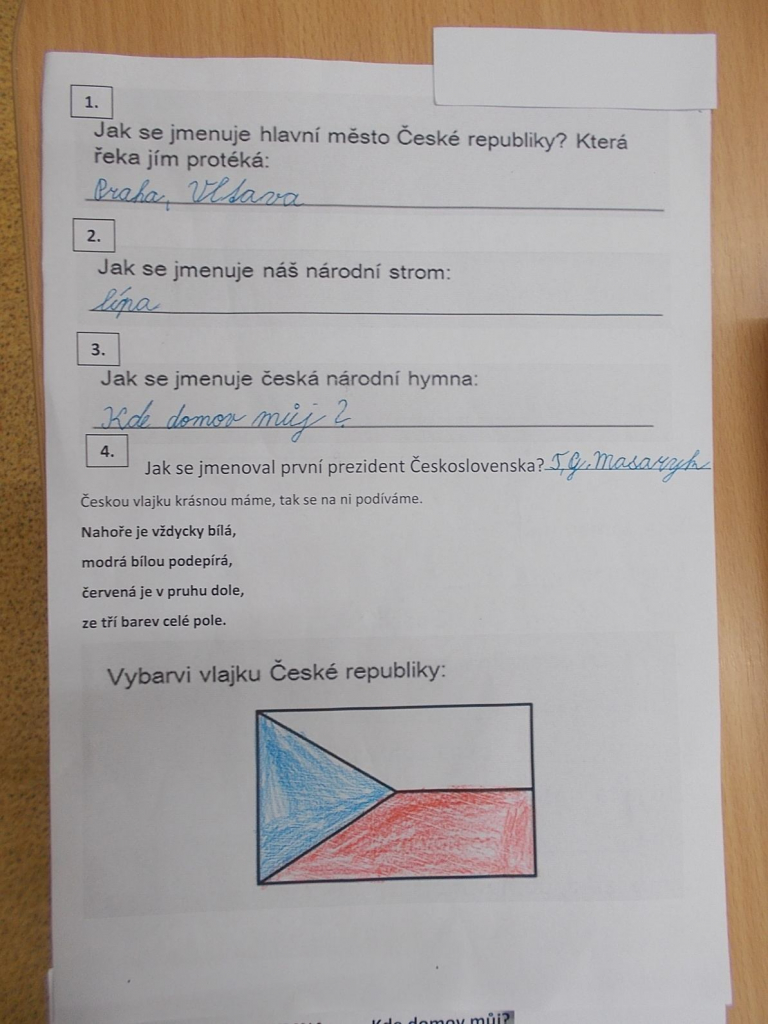 1.
Jak se jmenuje hlavní město České republiky? Která
řeka jím protéká:
Praha, Vltava
2.
Jak se jmenuje náš národní strom:
lípa
3.
Jak se jmenuje česká národní hymna:
Kde domov můj?
4.
Jak se jmenoval první prezident Československa? T.G. Masaryk
Českou vlajku krásnou máme, tak se na ni podíváme.
Nahoře je vždycky bílá,
modrá bílou podepírá,
červená je v pruhu dole,
ze tří barev celé pole.
Vybarvi vlajku České republiky:
Kde domov můj?